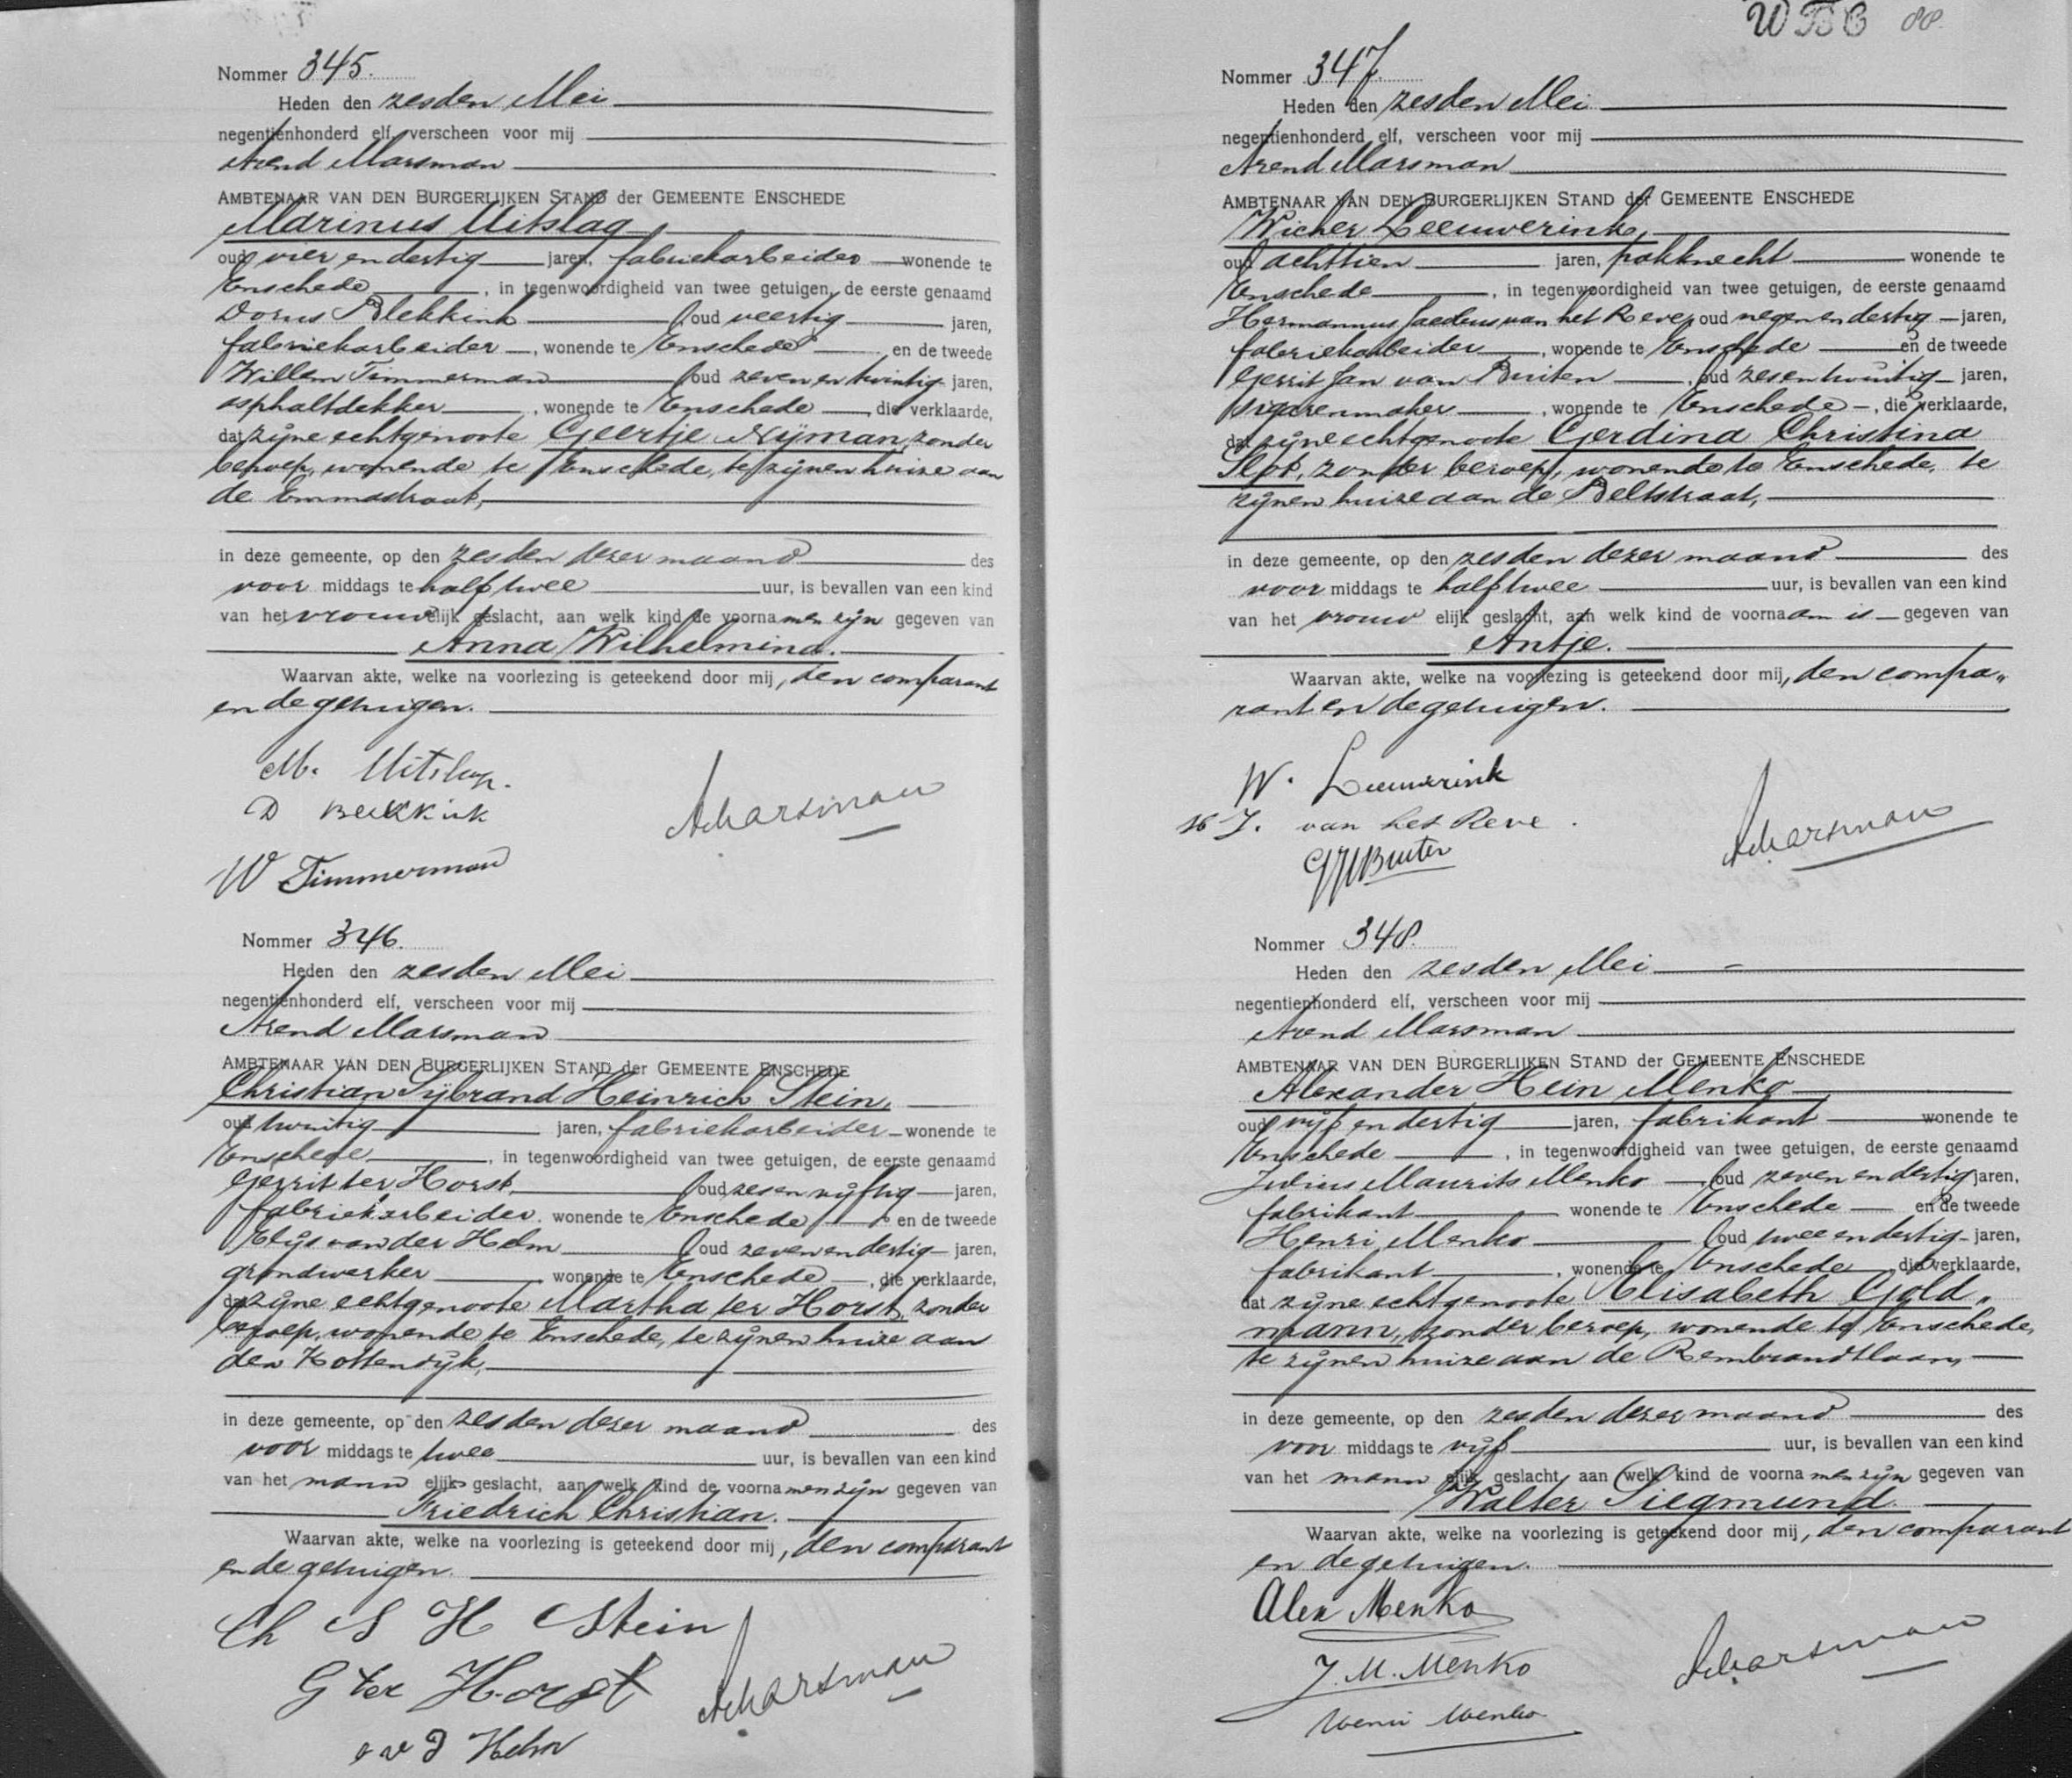 Nommer 345.
Heden den zesden Mei
negentienhonderd elf, verscheen voor mij
Arend Marsman
AMBTENAAR VAN DEN BURGERLIJKEN STAND der GEMEENTE ENSCHEDE
Marinus Uitslag,
oud vier en dertig jaren, fabriekarbeider wonende te
Enschede, in tegenwoordigheid van twee getuigen, de eerste genaamd
Dorus Blekkink, oud veertig jaren,
fabriekarbeider, wonende te Enschede en de tweede
Willem Timmerman, oud zeven en twintig jaren,
asphaltdekker, wonende te Enschede, die verklaarde,
dat zijne echtgenoote Geertje Nijman, zonder
beroep, wonende te Enschede, te zijnen huize aan
de Emmastraat,
in deze gemeente, op den zesden dezer maand des
voor middags te half twee uur, is bevallen van een kind
van het vrouwelijk geslacht, aan welk kind de voornamen zijn gegeven van
Anna Wilhelmina.
Waarvan akte, welke na voorlezing is geteekend door mij, den comparant
en de getuigen.
M. Uitslag.
D Blekkink
AMarsman
W Timmerman
Nommer 346.
Heden den zesden Mei
negentienhonderd elf, verscheen voor mij
Arend Marsman
AMBTENAAR VAN DEN BURGERLIJKEN STAND der GEMEENTE ENSCHEDE
Christian Sijbrand Heinrich Stein,
oud twintig jaren, fabriekarbeider wonende te
Enschede, in tegenwoordigheid van twee getuigen, de eerste genaamd
Gerrit ter Horst, oud zes en vijftig jaren,
fabriekarbeider, wonende te Enschede en de tweede
Elijs van der Helm, oud zeven en dertig jaren,
grondwerker wonende te Enschede, die verklaarde,
dat zijne echtgenoote Martha ter Horst, zonder
beroep, wonende te Enschede, te zijnen huize aan
den Kottendijk,
in deze gemeente, op den zesden dezer maand des
voor middags te twee uur, is bevallen van een kind
van het mannelijk geslacht, aan welk kind de voornamen zijn gegeven van
Friedrich Christian.
Waarvan akte, welke na voorlezing is geteekend door mij, den comparant
en de getuigen.
Ch S H Stein
G ter Horst
AMarsman
e v d Helm
WBC 88
Nommer 347.
Heden den zesden Mei
negentienhonderd elf, verscheen voor mij
Arend Marsman
AMBTENAAR VAN DEN BURGERLIJKEN STAND der GEMEENTE ENSCHEDE
Wicher Leeuwerink,
oud achttien jaren, pakknecht wonende te
Enschede, in tegenwoordigheid van twee getuigen, de eerste genaamd
Hermannus Jacobus van het Reve, oud negen en dertig jaren,
fabriekarbeider, wonende te Enschede en de tweede
Gerrit Jan van Buiten, oud zes en twintig jaren,
sigarenmaker, wonende te Enschede, die verklaarde,
dat zijne echtgenoote Gerdina Christina
Slot, zonder beroep, wonende te Enschede, te
zijnen huize aan de Beltstraat,
in deze gemeente, op den zesden dezer maand des
voor middags te half twee uur, is bevallen van een kind
van het vrouwelijk geslacht, aan welk kind de voornaam is gegeven van
Antje.
Waarvan akte, welke na voorlezing is geteekend door mij, den compa„
rant en de getuigen.
W. Leeuwerink
H J. van het Reve.
AMarsman
Nommer 348.
Heden den zesden Mei
negentienhonderd elf, verscheen voor mij
Arend Marsman
AMBTENAAR VAN DEN BURGERLIJKEN STAND der GEMEENTE ENSCHEDE
Alexander Hein Menko
oud vijf en dertig jaren, fabrikant wonende te
Enschede, in tegenwoordigheid van twee getuigen, de eerste genaamd
Julius Maurits Menko, oud zeven en dertig jaren,
fabrikant wonende te Enschede en de tweede
Henri Menko, oud twee en dertig jaren,
fabrikant, wonende te Enschede, die verklaarde,
dat zijne echtgenoote Elisabeth Gold„
mann, zonder beroep, wonende te Enschede,
te zijnen huize aan de Rembrandtlaan,
in deze gemeente, op den zesden dezer maand des
voor middags te vijf uur, is bevallen van een kind
van het mannelijk geslacht, aan welk kind de voornamen zijn gegeven van
Walter Siegmund.
Waarvan akte, welke na voorlezing is geteekend door mij, den comparant
en de getuigen.
Alex Menko
J. M. Menko
AMarsman
Henri Menko